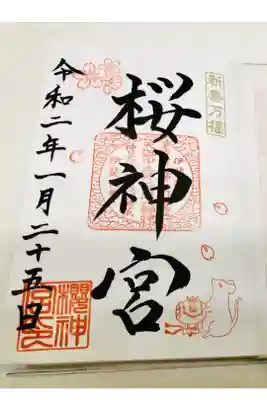 新春万福
桜神宮
令和二年一月二十五日
櫻神宮印